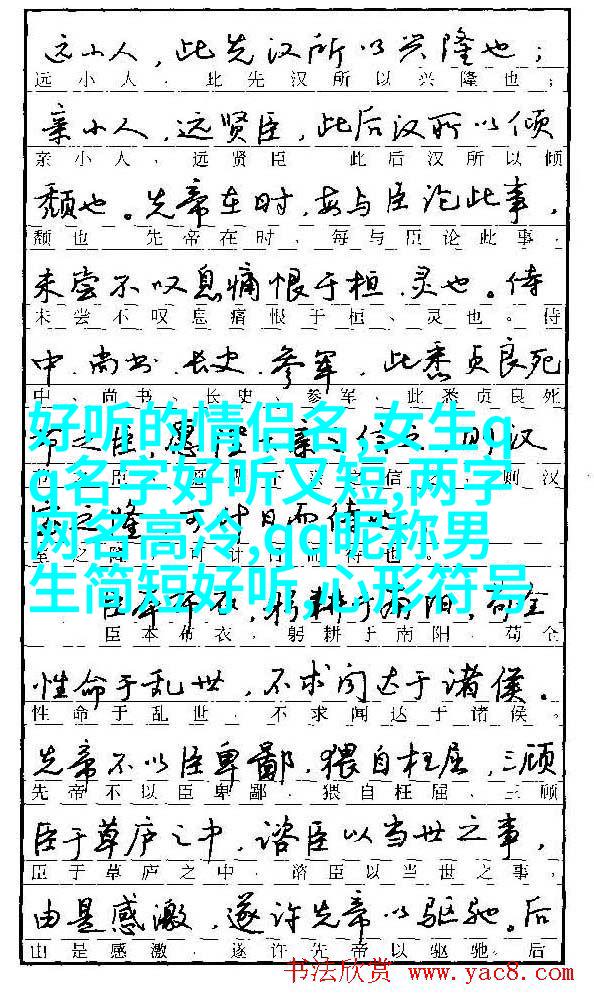 远小人，此先汉所以兴隆也；
远小人，此先汉所以兴隆也；
亲小人，远贤臣，此后汉所以倾
亲小人，远贤臣 此后汉所以倾
颓也。先帝在时，每与臣论此事，
颓也 先帝在时，每与臣论此事，
未尝不叹息痛恨于桓、灵也。侍
未尝不叹息痛恨于桓、灵也。侍
中、尚书、长史、参军，此悉贞良死
中、尚书、长史、参军，此悉贞良死
好听的情侣名,女生q
q名字好听又短,两字
网名高冷,qq昵称男
生简短好听,心形符号
之臣，愿陛 亲 信 则汉
则汉
之隆，可计日而待也
可计日而待也。
臣本布衣，躬耕于南阳，苟全
臣本布衣，躬耕于南阳，苟全
性命于乱世，不求闻达于诸侯。
性命于乱世，不求闻达于诸侯。
先帝不以臣卑鄙，猥自枉屈，三顾
先帝不以臣卑鄙，猥自枉屈、三顾
臣于草庐之中，谘臣以当世之事，
臣于草庐之中，谘臣以当世之事，
由是感激，遂许先帝以驱驰。后
由是感激，遂许先帝以驱驰。后
书法欣赏 www.yac8.com